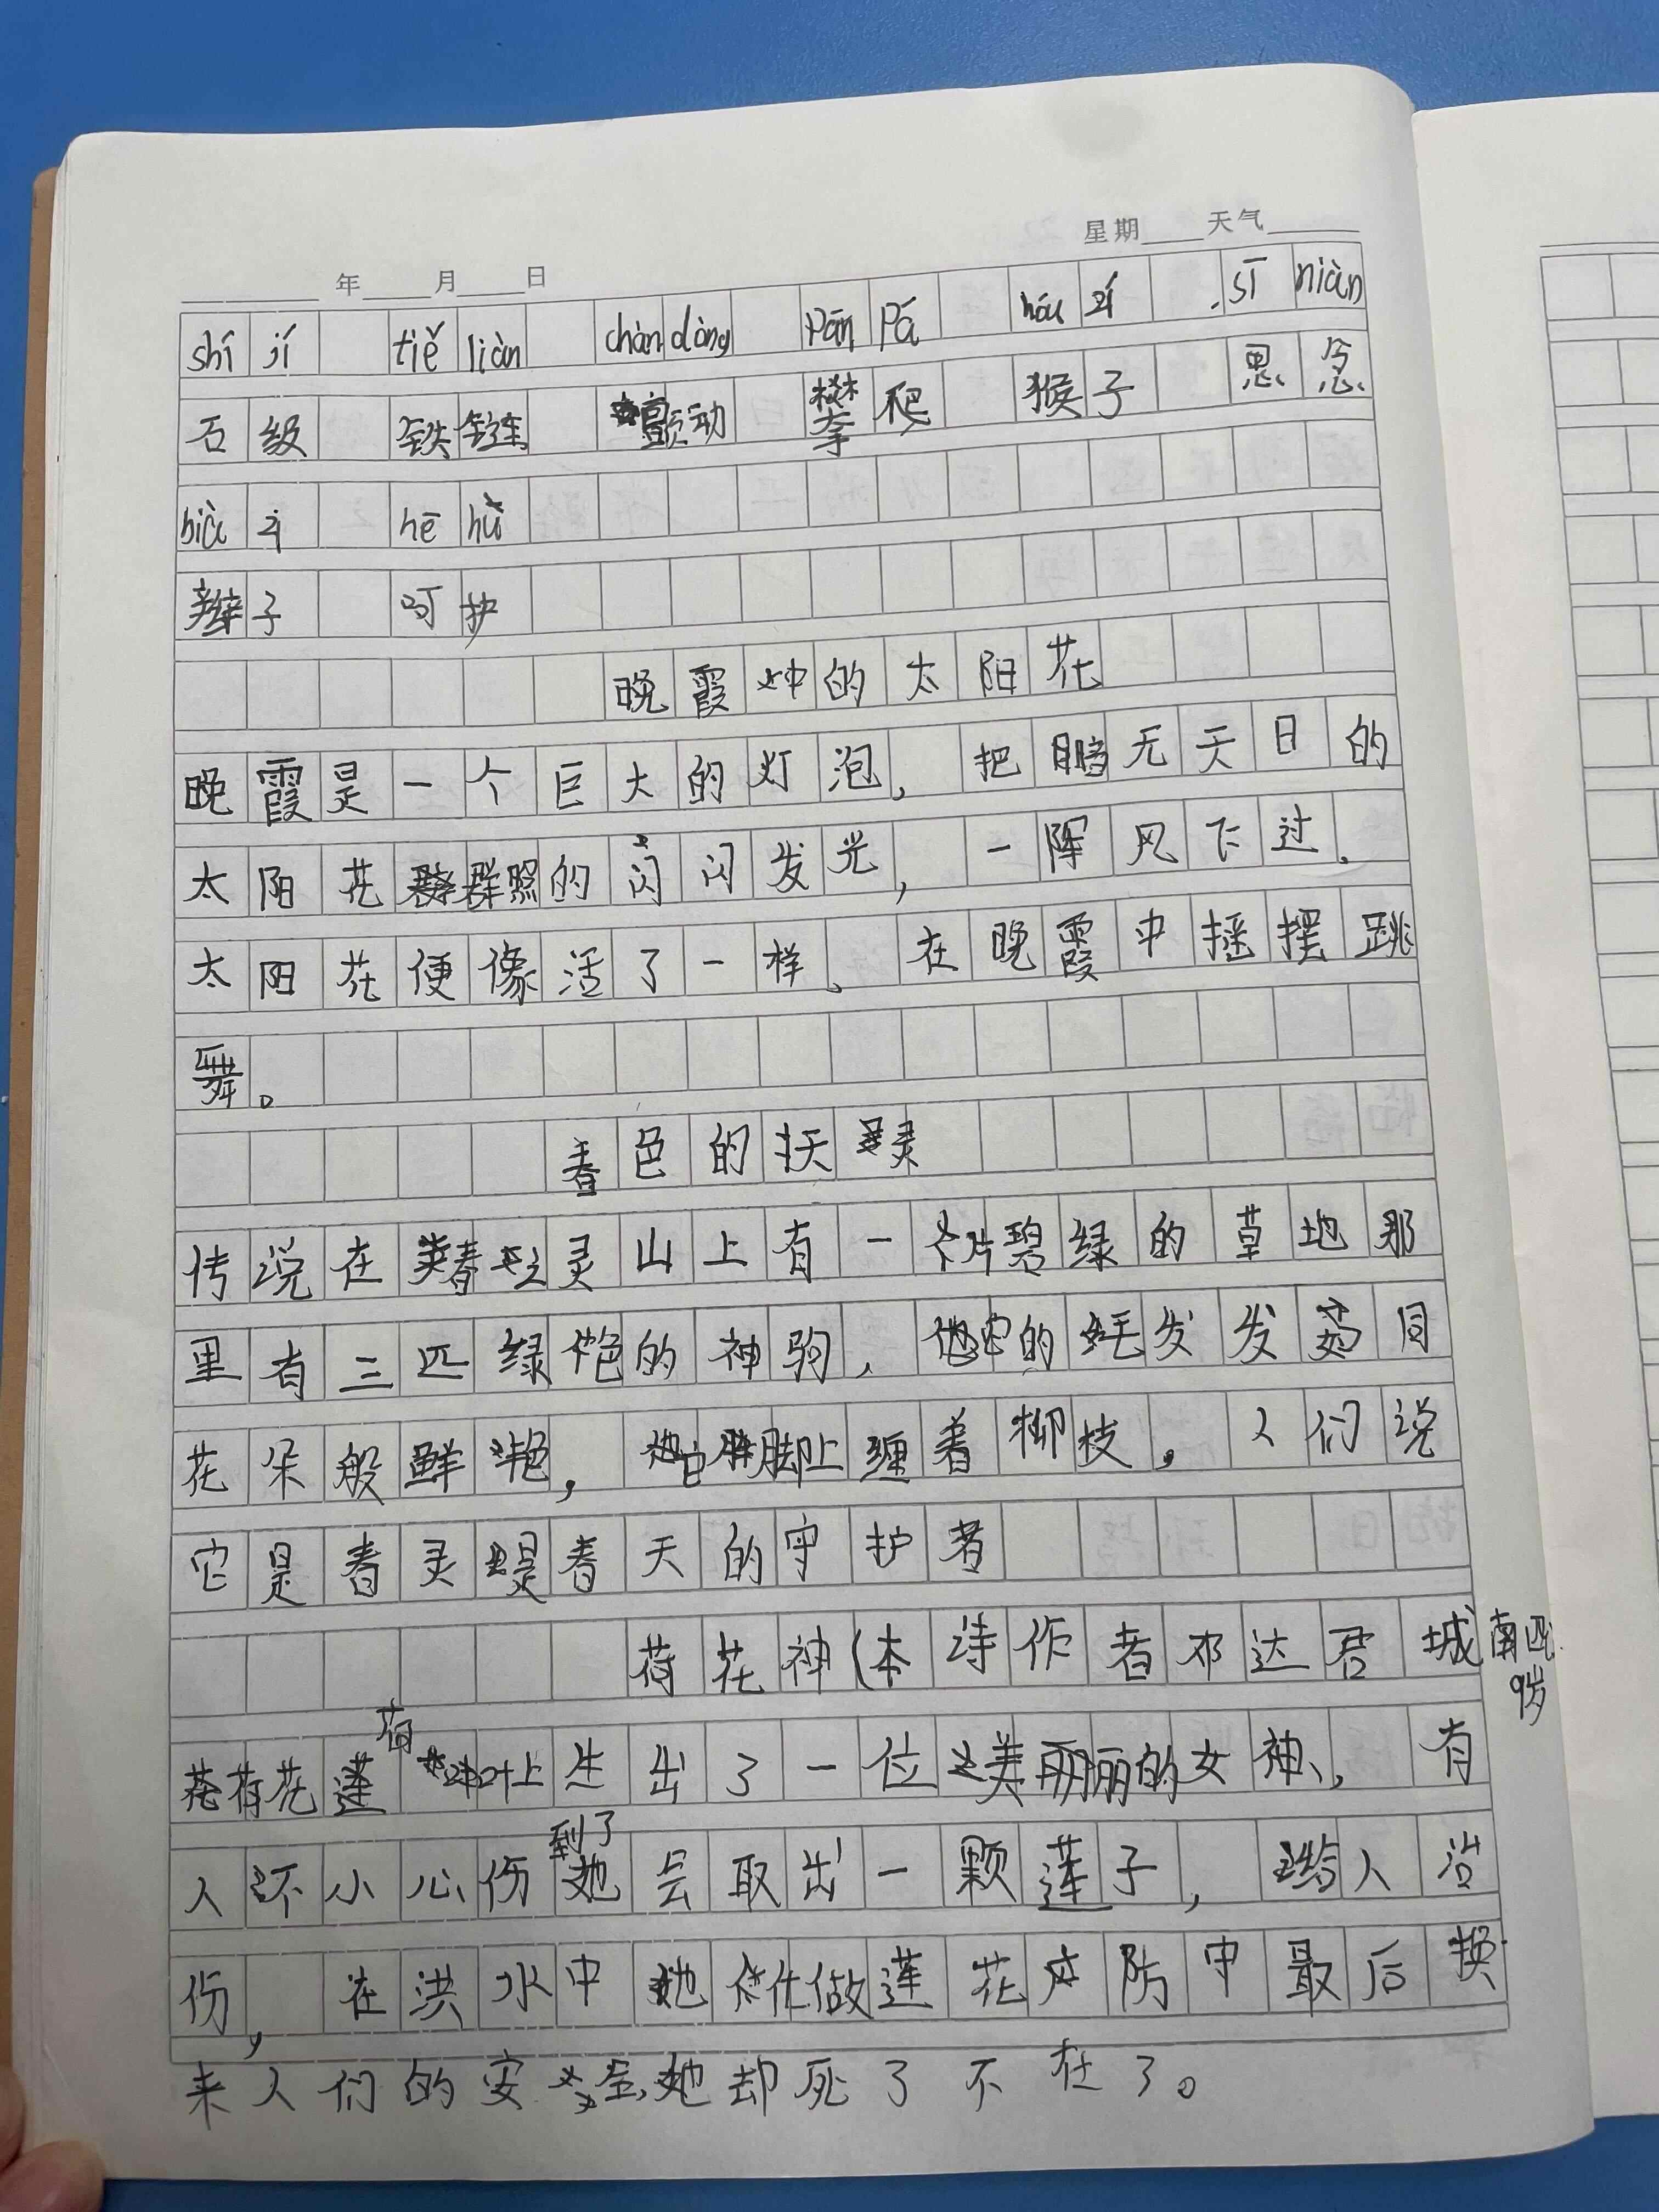 年 月 日 星期 天气
shí jí tiě liàn chàn dòng Pān Pá hóu zi sī niàn
石级 铁链 颤动 攀爬 猴子 思念
biàn zi hē hù
辫子 呵护
晚霞中的太阳花
晚霞是一个巨大的灯泡，把暗无天日的
太阳花群照的闪闪发光，一阵风下过.
太阳花便像活了一样、在晚霞中摇摆跳
舞。
春色的灵
传说在春之灵山上有一片碧绿的草地那
里有三匹绿色的神驹，它的毛发发如同
花朵般鲜艳，它脚上缠着柳枝。人们说
它是春灵是春天的守护者
荷花神(本诗作者邓达君 城南四
9岁
荷花莲荷叶上生出了一位美丽的女神、有
人不小心伤到了她会取出一颗莲子，给人治
伤，在洪水中她化做莲花 防中最后换
来人们的安全她却死了不在了。